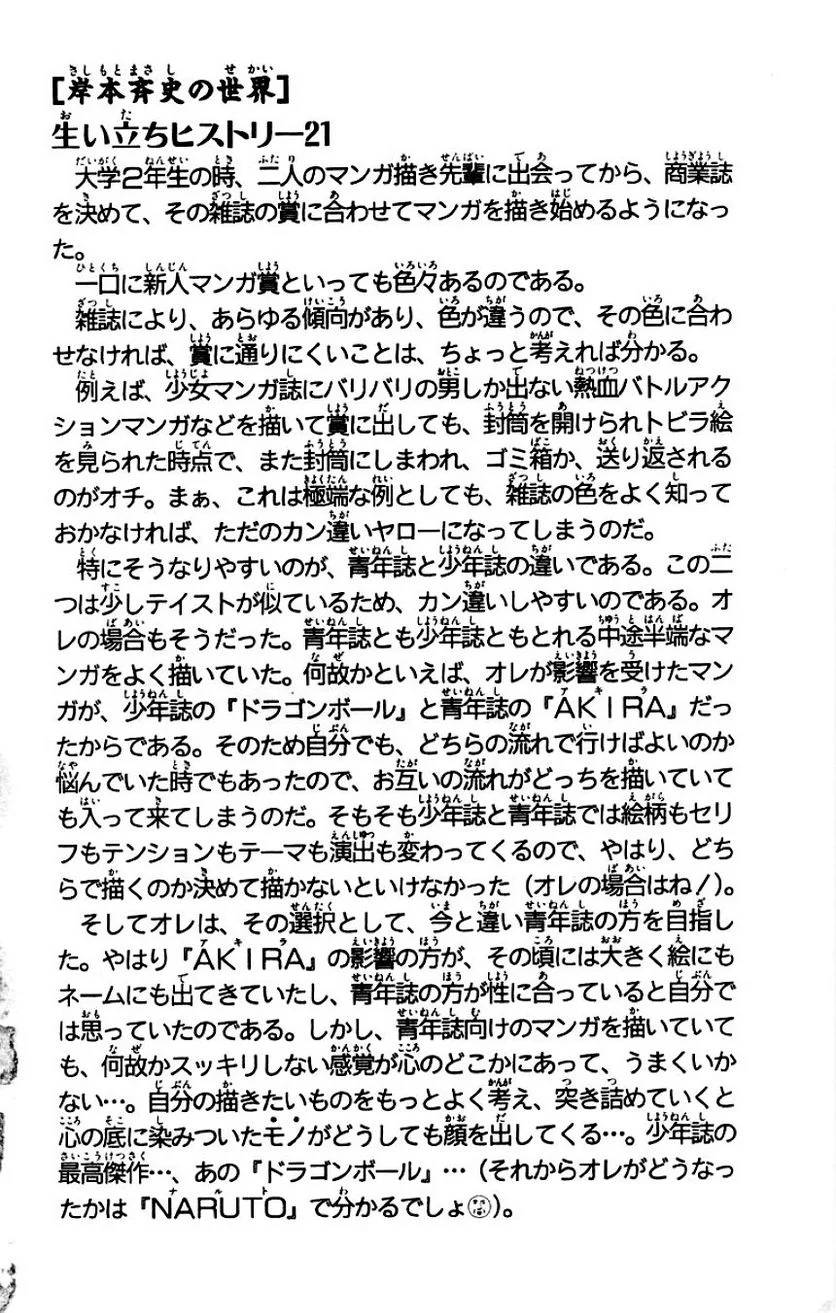 [岸本斉史の世界]
生い立ちヒストリー21
大学2年生の時、二人のマンガ描き先輩に出会ってから、商業誌
を決めて、その雑誌の賞に合わせてマンガを描き始めるようになっ
た。
一口に新人マンガ賞といっても色々あるのである。
雑誌により、あらゆる傾向があり、色が違うので、その色に合わ
せなければ、賞に通りにくいことは、ちょっと考えれば分かる。
例えば、少女マンガ誌にバリバリの男しか出ない熱血バトルアク
ションマンガなどを描いて賞に出しても、封筒を開けられトビラ絵
を見られた時点で、また封筒にしまわれ、ゴミ箱か、送り返される
のがオチ。まぁ、これは極端な例としても、雑誌の色をよく知って
おかなければ、ただのカン違いヤローになってしまうのだ。
特にそうなりやすいのが、青年誌と少年誌の違いである。この二
つは少しテイストが似ているため、カン違いしやすいのである。オ
レの場合もそうだった。青年誌とも少年誌ともとれる中途半端なマ
ンガをよく描いていた。何故かといえば、オレが影響を受けたマン
ガが、少年誌の『ドラゴンボール』と青年誌の『AKIRA』だっ
たからである。そのため自分でも、どちらの流れで行けばよいのか
悩んでいた時でもあったので、お互いの流れがどっちを描いていて
も入って来てしまうのだ。そもそも少年誌と青年誌では絵柄もセリ
フもテンションもテーマも演出も変わってくるので、やはり、どち
らで描くのか決めて描かないといけなかった（オレの場合はね！）。
そしてオレは、その選択として、今と違い青年誌の方を目指し
た。やはり『AKIRA』の影響の方が、その頃には大きく絵にも
ネームにも出てきていたし、青年誌の方が性に合っていると自分で
は思っていたのである。しかし、青年誌向けのマンガを描いていて
も、何故かスッキリしない感覚が心のどこかにあって、うまくいか
ない…。自分の描きたいものをもっとよく考え、突き詰めていくと
心の底に染みついたモノがどうしても顔を出してくる…。少年誌の
最高傑作…、あの『ドラゴンボール』…（それからオレがどうなっ
たかは『NARUTO』で分かるでしょ）。